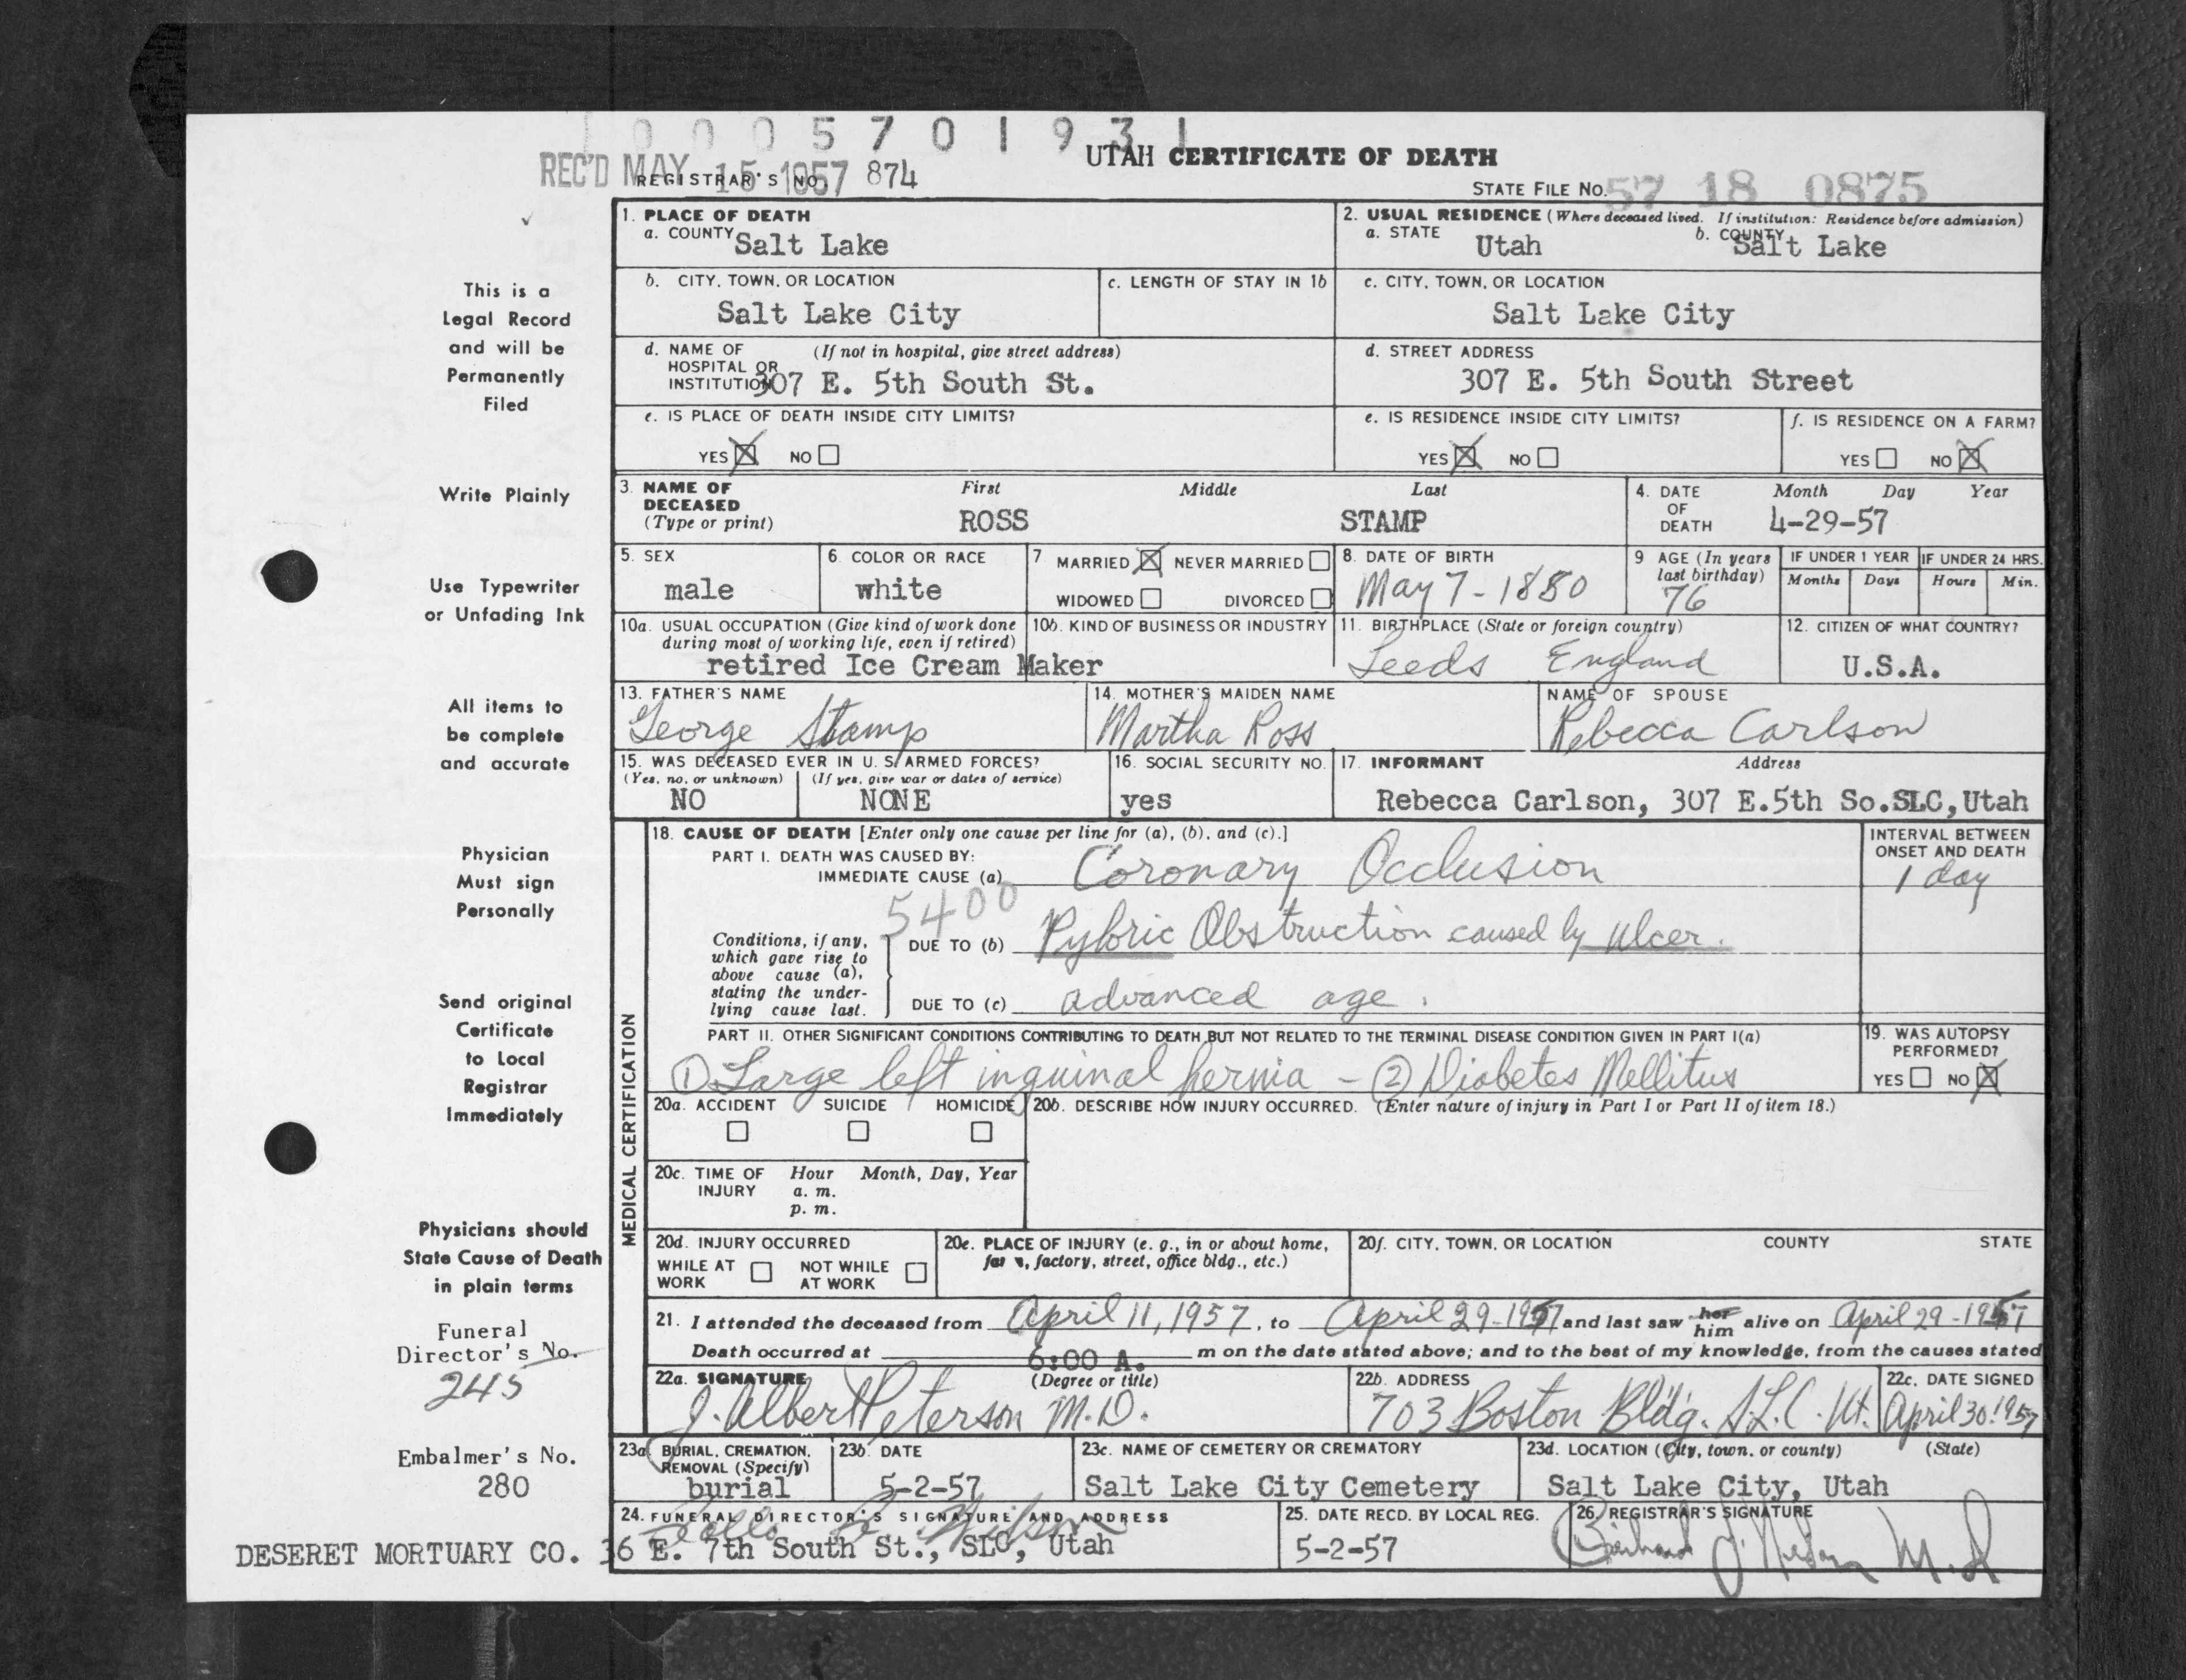 0 0 0 5 7 0 1 9 3 1
UTAH CERTIFICATE OF DEATH
REC'D MAY 15 1957
REGISTRAR'S NO. 874
STATE FILE NO. 57 18 0875
1. PLACE OF DEATH
a. COUNTY Salt Lake
2. USUAL RESIDENCE (Where deceased lived. If institution: Residence before admission)
a. STATE Utah b. COUNTY Salt Lake
b. CITY, TOWN, OR LOCATION Salt Lake City
c. LENGTH OF STAY IN 1b
c. CITY, TOWN, OR LOCATION Salt Lake City
d. NAME OF HOSPITAL OR INSTITUTION (If not in hospital, give street address)
307 E. 5th South St.
d. STREET ADDRESS
307 E. 5th South Street
e. IS PLACE OF DEATH INSIDE CITY LIMITS?
YES ☒ NO ☐
e. IS RESIDENCE INSIDE CITY LIMITS?
YES ☒ NO ☐
f. IS RESIDENCE ON A FARM?
YES ☐ NO ☒
3. NAME OF DECEASED (Type or print)
First Middle Last
ROSS STAMP
4. DATE OF DEATH Month Day Year
4-29-57
5. SEX
male
6. COLOR OR RACE
white
7 MARRIED ☒ NEVER MARRIED ☐
WIDOWED ☐ DIVORCED ☐
8. DATE OF BIRTH
May 7 - 1880
9 AGE (In years last birthday)
76
IF UNDER 1 YEAR
Months Days
IF UNDER 24 HRS.
Hours Min.
10a. USUAL OCCUPATION (Give kind of work done during most of working life, even if retired)
10b. KIND OF BUSINESS OR INDUSTRY
retired Ice Cream Maker
11. BIRTHPLACE (State or foreign country)
Leeds England
12. CITIZEN OF WHAT COUNTRY?
U.S.A.
13. FATHER'S NAME
George Stamp
14. MOTHER'S MAIDEN NAME
Martha Ross
NAME OF SPOUSE
Rebecca Carlson
15. WAS DECEASED EVER IN U. S. ARMED FORCES?
(Yes, no, or unknown) (If yes, give war or dates of service)
NO NONE
16. SOCIAL SECURITY NO.
yes
17. INFORMANT Address
Rebecca Carlson, 307 E.5th So.SLC,Utah
MEDICAL CERTIFICATION
18. CAUSE OF DEATH [Enter only one cause per line for (a), (b), and (c).]
PART I. DEATH WAS CAUSED BY:
IMMEDIATE CAUSE (a) Coronary Occlusion
INTERVAL BETWEEN ONSET AND DEATH
1 day
5400
Conditions, if any, which gave rise to above cause (a), stating the underlying cause last.
DUE TO (b) Pyloric Obstruction caused by ulcer.
DUE TO (c) advanced age.
PART II. OTHER SIGNIFICANT CONDITIONS CONTRIBUTING TO DEATH BUT NOT RELATED TO THE TERMINAL DISEASE CONDITION GIVEN IN PART I(a)
① Large left inguinal hernia - ② Diabetes Mellitus
19. WAS AUTOPSY PERFORMED?
YES ☐ NO ☒
20a. ACCIDENT SUICIDE HOMICIDE
☐ ☐ ☐
20b. DESCRIBE HOW INJURY OCCURRED. (Enter nature of injury in Part I or Part II of item 18.)
20c. TIME OF INJURY Hour Month, Day, Year
a. m.
p. m.
20d. INJURY OCCURRED
WHILE AT WORK ☐ NOT WHILE AT WORK ☐
20e. PLACE OF INJURY (e. g., in or about home, farm, factory, street, office bldg., etc.)
20f. CITY, TOWN, OR LOCATION COUNTY STATE
21. I attended the deceased from April 11, 1957, to April 29-1957 and last saw her him alive on April 29-1957
Death occurred at 6:00 A. m on the date stated above; and to the best of my knowledge, from the causes stated
22a. SIGNATURE (Degree or title)
J. Albert Peterson M.D.
22b. ADDRESS
703 Boston Bldg. S.L.C. Ut.
22c. DATE SIGNED
April 30, 1957
23a. BURIAL, CREMATION, REMOVAL (Specify)
burial
23b. DATE
5-2-57
23c. NAME OF CEMETERY OR CREMATORY
Salt Lake City Cemetery
23d. LOCATION (City, town, or county) (State)
Salt Lake City, Utah
24. FUNERAL DIRECTOR'S SIGNATURE AND ADDRESS
DESERET MORTUARY CO. 36 E. 7th South St., SLC, Utah
25. DATE RECD. BY LOCAL REG.
5-2-57
26. REGISTRAR'S SIGNATURE
M.D.
This is a
Legal Record
and will be
Permanently
Filed
Write Plainly
Use Typewriter
or Unfading Ink
All items to
be complete
and accurate
Physician
Must sign
Personally
Send original
Certificate
to Local
Registrar
Immediately
Physicians should
State Cause of Death
in plain terms
Funeral
Director's No.
245
Embalmer's No.
280